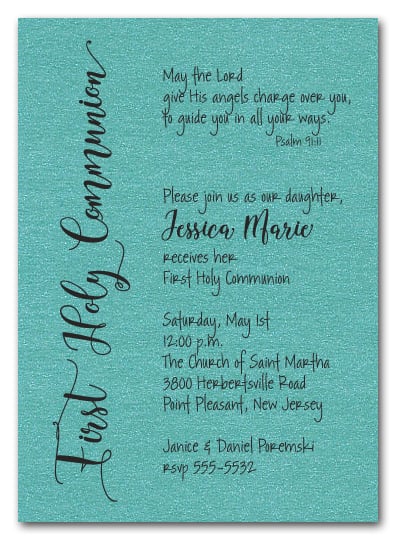 First Holy Communion
May the Lord
give His angels charge over you,
to guide you in all your ways.
Psalm 91:11
Please join us as our daughter,
Jessica Marie
receives her
First Holy Communion
Saturday, May 1st
12:00 p.m.
The Church of Saint Martha
3800 Herbertsville Road
Point Pleasant, New Jersey
Janice & Daniel Poremski
rsvp 555-5532